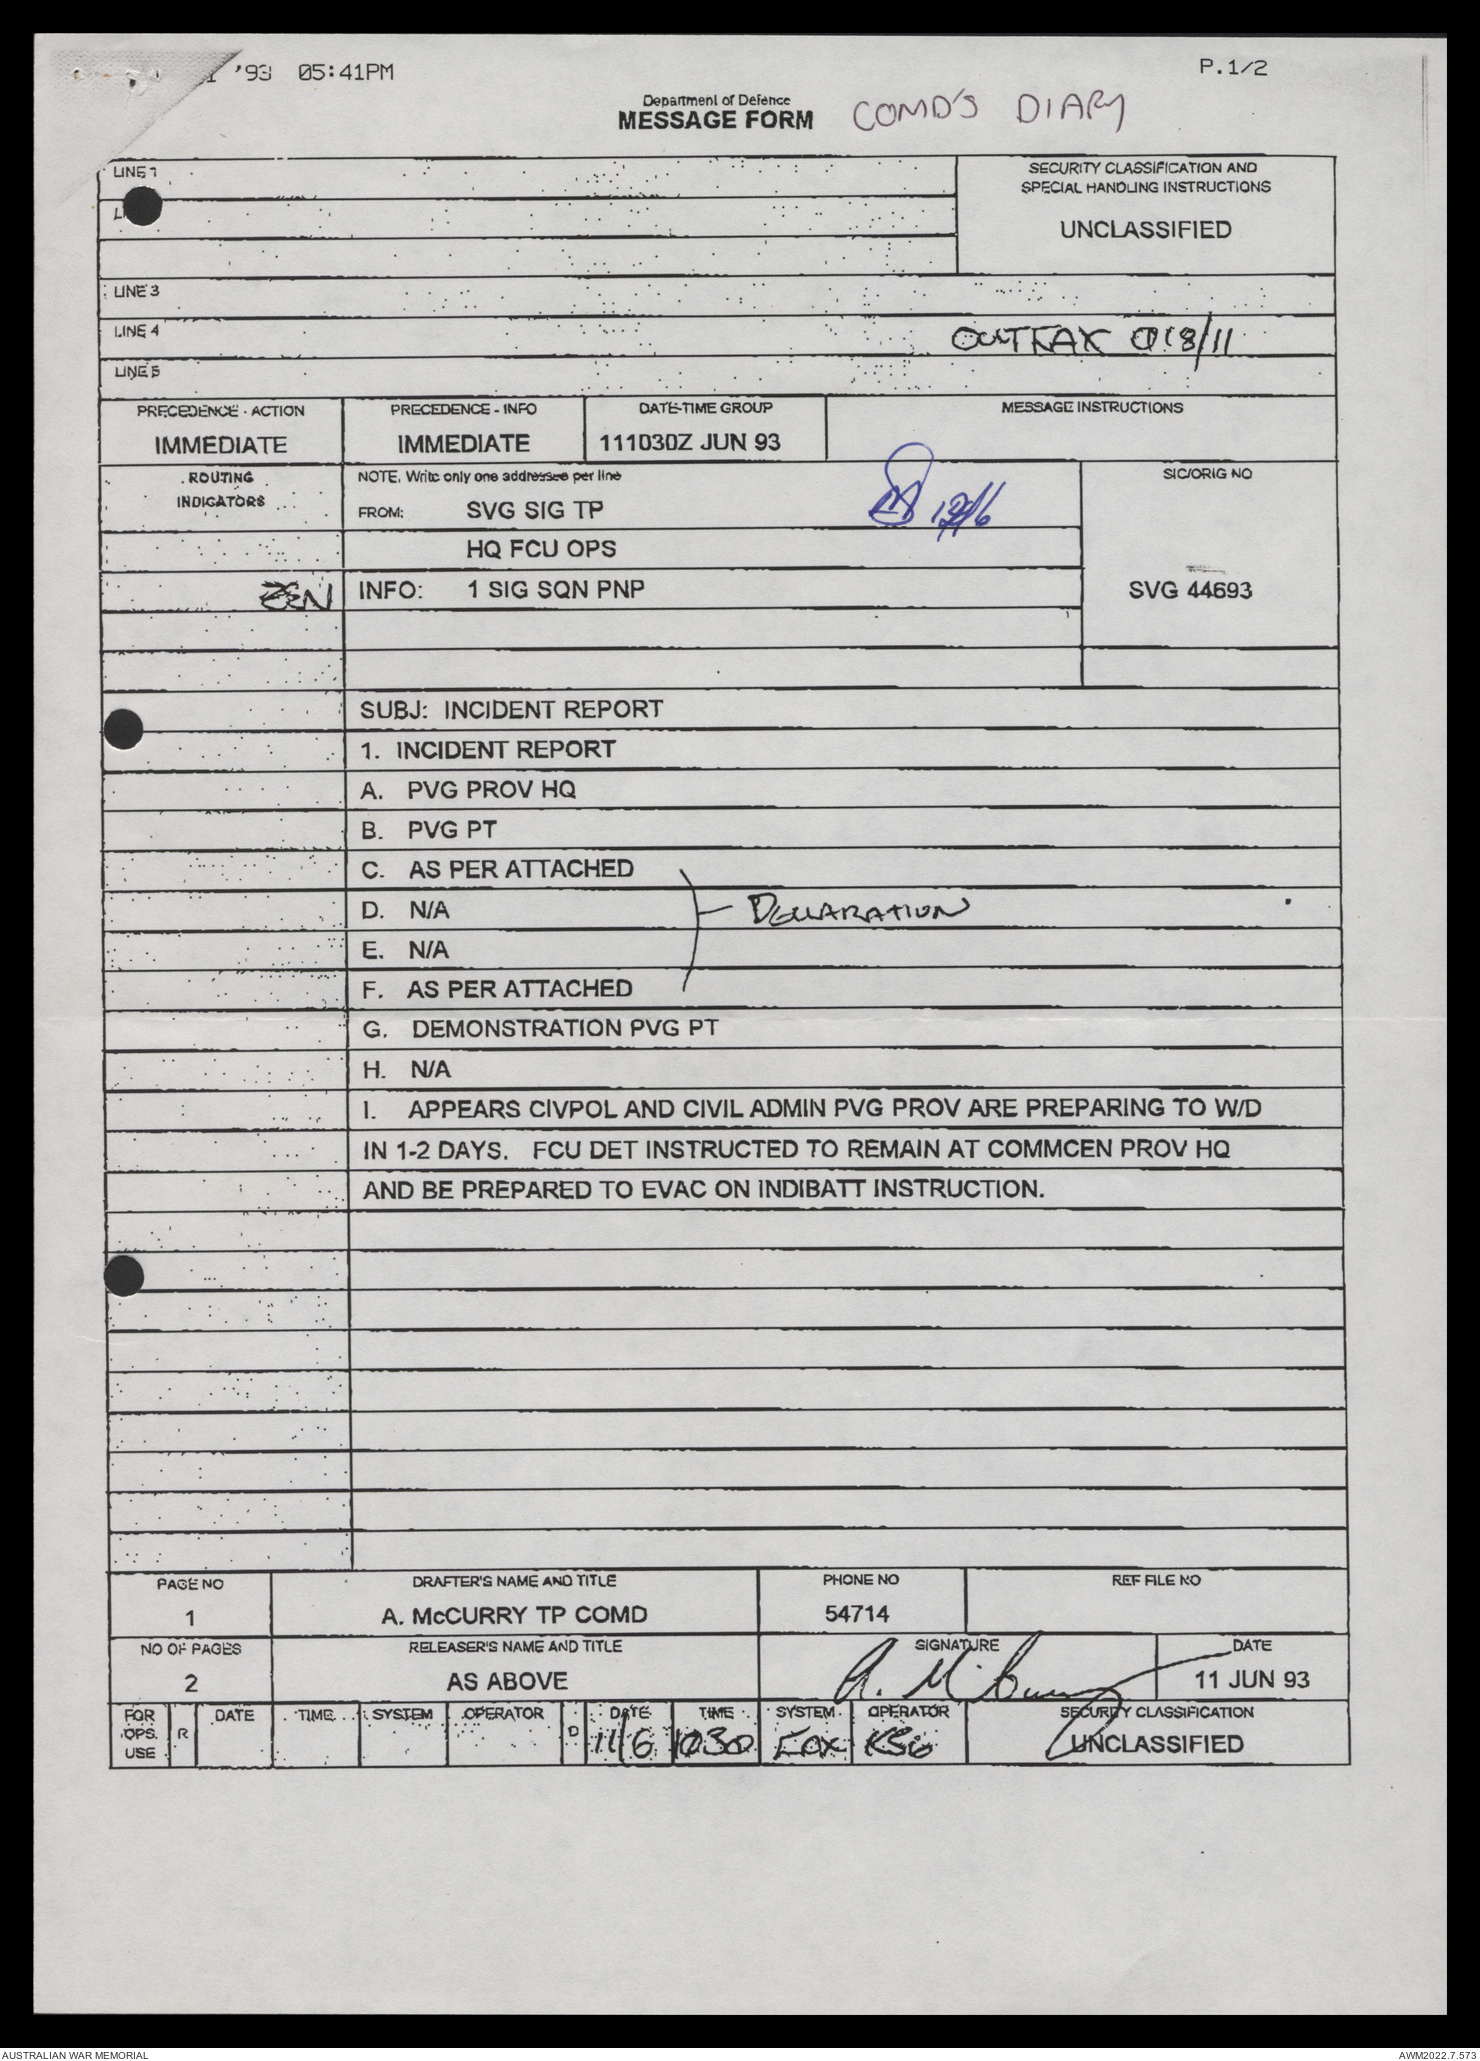 '93 05:41PM
P.1/2
Department of Defence
MESSAGE FORM COMD'S DIARY
LINE 1
SECURITY CLASSIFICATION AND
SPECIAL HANDLING INSTRUCTIONS
UNCLASSIFIED
LINE 3
LINE 4
OUTFAX 018/11
LINE 5
PRECEDENCE - ACTION
IMMEDIATE
PRECEDENCE - INFO
IMMEDIATE
DATE-TIME GROUP
111030Z JUN 93
MESSAGE INSTRUCTIONS
ROUTING
INDICATORS
NOTE. Write only one addressee per line
FROM: SVG SIG TP
HQ FCU OPS
ZEN
INFO: 1 SIG SQN PNP
SIC/ORIG NO
SVG 44693
SUBJ: INCIDENT REPORT
1. INCIDENT REPORT
A. PVG PROV HQ
B. PVG PT
C. AS PER ATTACHED
D. N/A
DECLARATION
E. N/A
F. AS PER ATTACHED
G. DEMONSTRATION PVG PT
H. N/A
I. APPEARS CIVPOL AND CIVIL ADMIN PVG PROV ARE PREPARING TO W/D
IN 1-2 DAYS. FCU DET INSTRUCTED TO REMAIN AT COMMCEN PROV HQ
AND BE PREPARED TO EVAC ON INDIBATT INSTRUCTION.
PAGE NO
1
DRAFTER'S NAME AND TITLE
A. McCURRY TP COMD
PHONE NO
54714
REF FILE NO
NO OF PAGES
2
RELEASER'S NAME AND TITLE
AS ABOVE
SIGNATURE
DATE
11 JUN 93
FOR
OPS.
USE
R
DATE
TIME
SYSTEM
OPERATOR
D
DATE
11/6
TIME
1030
SYSTEM
FAX
OPERATOR
SECURITY CLASSIFICATION
UNCLASSIFIED
AUSTRALIAN WAR MEMORIAL
AWM2022.7.573